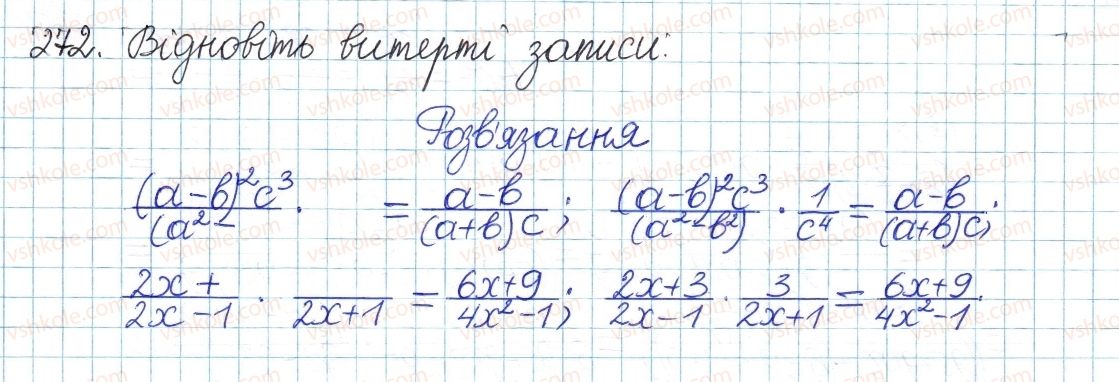 272. Відновіть витерті записи:
Розв'язання
(a-b)²c³/(a²- · = a-b/(a+b)c; (a-b)²c³/(a²-b²) · 1/c⁴ = a-b/(a+b)c;
2x+/2x-1 · /2x+1 = 6x+9/4x²-1; 2x+3/2x-1 · 3/2x+1 = 6x+9/4x²-1.